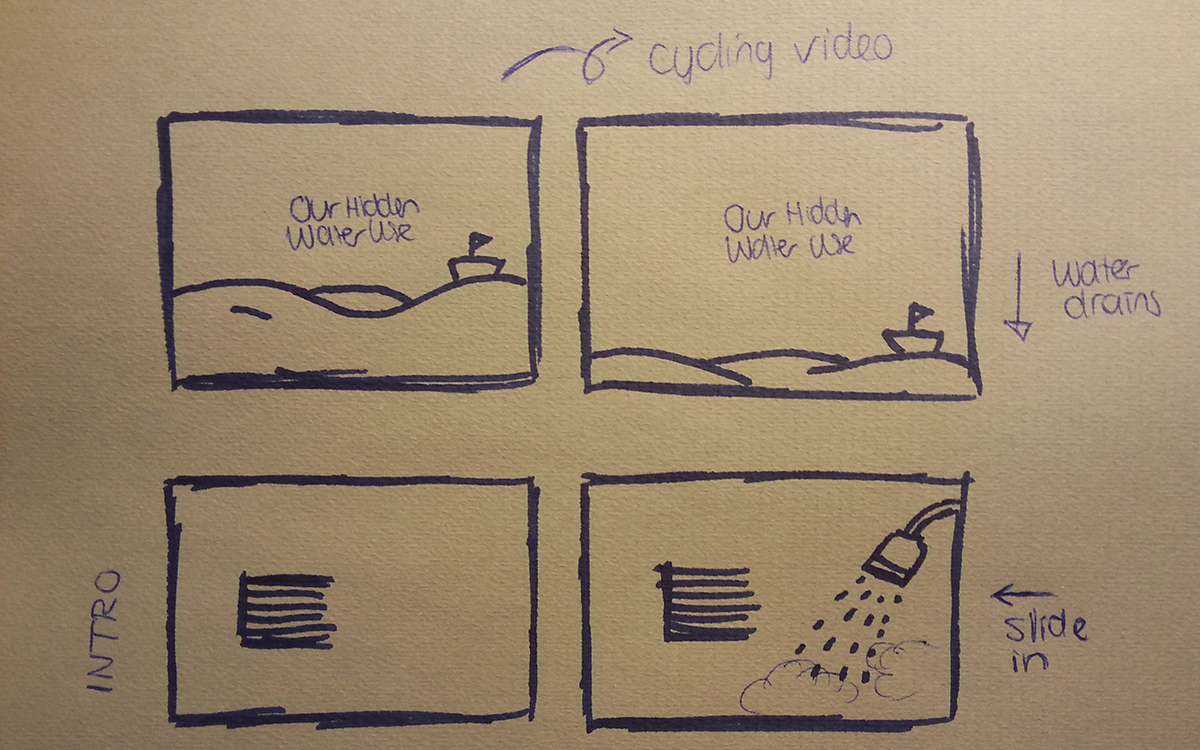 cycling video
Our Hidden
Water Use
Our Hidden
Water Use
water
drains
INTRO
slide
in